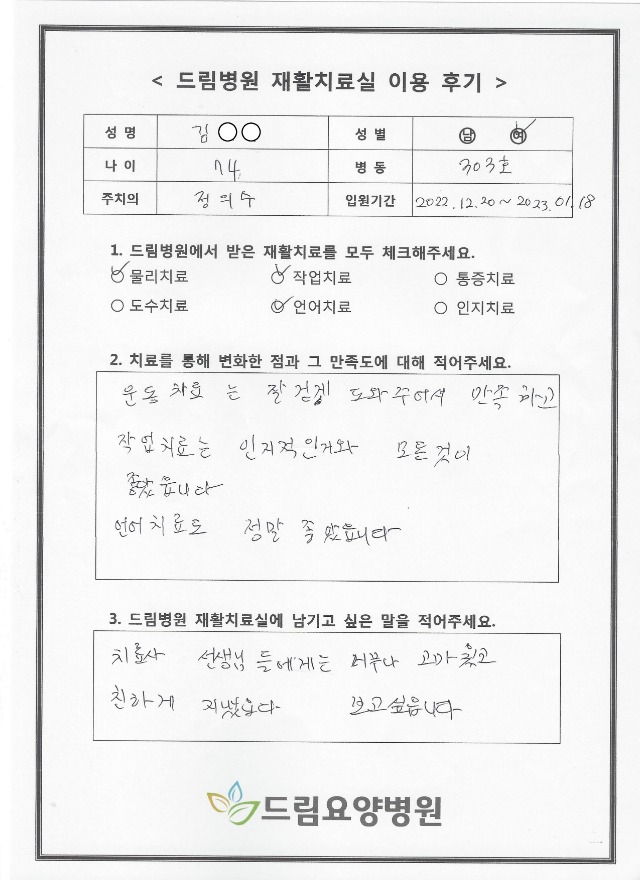 < 드림병원 재활치료실 이용 후기 >
성 명 김 ○○ 성 별 남 여
나 이 74 병 동 303호
주치의 정의수 입원기간 2022.12.20~2023.01.18
1. 드림병원에서 받은 재활치료를 모두 체크해주세요.
물리치료 작업치료 통증치료
도수치료 언어치료 인지치료
2. 치료를 통해 변화한 점과 그 만족도에 대해 적어주세요.
운동 치료 는 잘 걷게 도와주어서 만족 하고
작업치료는 인지적인거와 모든것이
좋았읍니다
언어치료도 정말 좋았읍니다
3. 드림병원 재활치료실에 남기고 싶은 말을 적어주세요.
치료사 선생님 들에게는 너무나 고마웠고
친하게 지냈읍니다 보고싶읍니다
드림요양병원